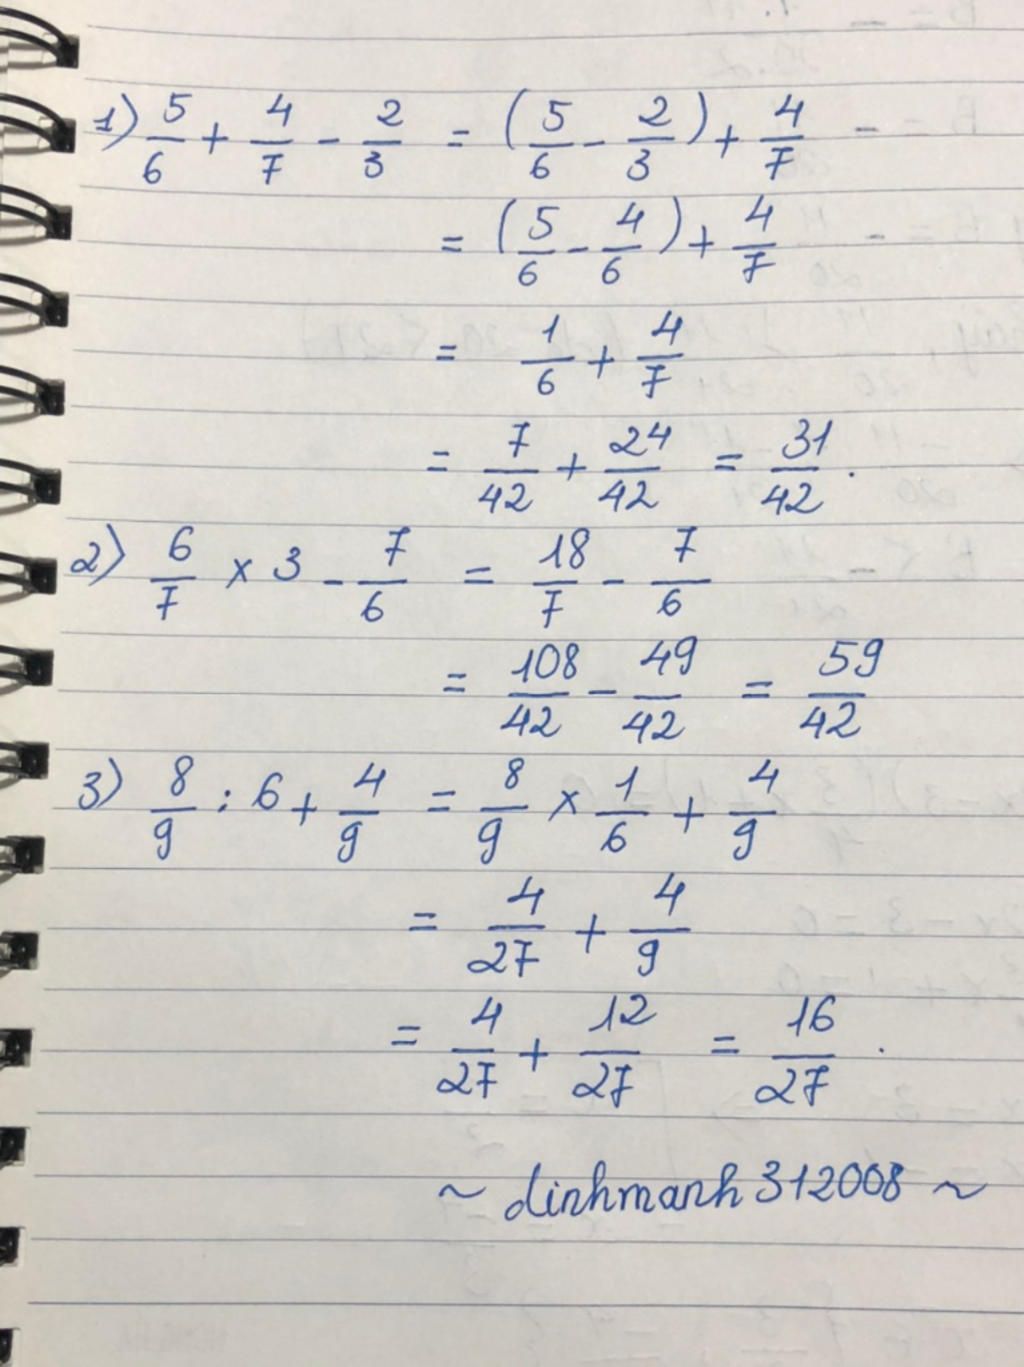 1) 5/6 + 4/7 - 2/3 = (5/6 - 2/3) + 4/7
= (5/6 - 4/6) + 4/7
= 1/6 + 4/7
= 7/42 + 24/42 = 31/42 .
2) 6/7 × 3 - 7/6 = 18/7 - 7/6
= 108/42 - 49/42 = 59/42
3) 8/9 : 6 + 4/9 = 8/9 × 1/6 + 4/9
= 4/27 + 4/9
= 4/27 + 12/27 = 16/27 .
~ dinhmanh312008 ~